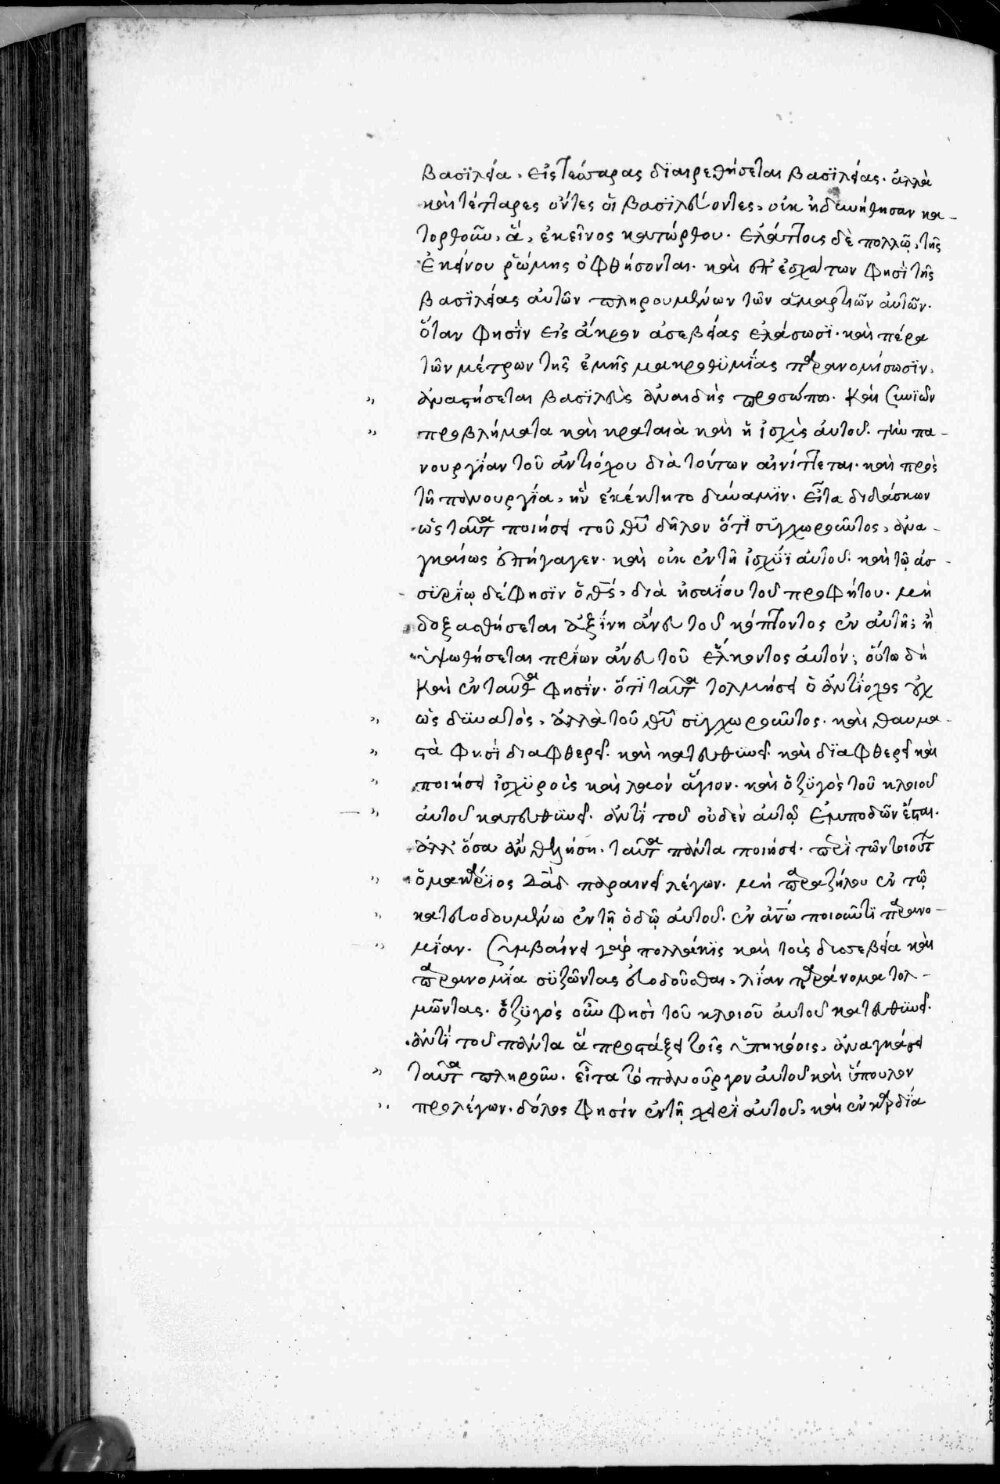 βασϊλεία. εἰς τέσσαρας δϊαιρεθήσεται βασϊλείας. ἀλλὰ
καὶ τέτταρες ὄντες οἵ βασϊλεύοντες, οὐκ ἠδυνήθησαν κα-
τορθοῦν, ἅ, ἐκεῖνος κατώρθου. ἐλάττους δὲ πολλῷ, τῆς
ἐκείνου ῥώμης ὀφθήσονται. καὶ ἐπ' ἐσχάτων φησὶ τῆς
βασϊλείας αὐτῶν πληρουμένων τῶν ἁμαρτιῶν αὐτῶν.
ὅταν φησὶν εἰς ἄκρον ἀσεβείας ἐλάσωσϊ. καὶ πέρα
τῶν μέτρων τῆς ἐμῆς μακροθϋμΐας παρανομήσωσϊν,
ἀναστήσεται βασϊλεὺς ἀναιδὴς προσώπω. καὶ συνϊῶν
προβλήματα καὶ κραταιὰ καὶ ἡ ἰσχὺς αὐτοῦ. τὴν πα-
νουργίαν τοῦ ἀντιόχου διὰ τούτων αἰνίττεται. καὶ πρὸς
τῆ πανουργία, ἣν ἐκέκτητο δύναμϊν. εἶτα διδάσκων
ὡς ταῦτα ποιήσει τοῦ θυ δῆλον ὅτϊ συγχωροῦντος, ἀνα-
γκαίως ἐπήγαγεν. καὶ οὐκ ἐν τῆ ἰσχύϊ αὐτοῦ. καὶ τῷ ἀσ-
σϋρΐῳ δέ φησϊν ὁ θς, διὰ ἡσαΐου τοῦ προφήτου. μὴ
δοξασθήσεται ἀξίνη ἄνευ τοῦ κόπτοντος ἐν αὐτῆ; ἢ
ὑψωθήσεται πρΐων ἄνευ τοῦ ἕλκοντος αὐτόν; οὕτω δὴ
καὶ ἐνταῦθα φησίν. ὅτϊ ταῦτα τολμήσει ὁ ἀντΐοχος οὐχ
ὡς δϋνατὸς, ἀλλὰ τοῦ θυ συγχωροῦντος. καὶ θαυμα-
στὰ φησὶ διαφθερεῖ. καὶ κατευθυνεῖ. καὶ δϊαφθερεῖ καὶ
ποιήσει ἰσχϋροὺς καὶ λαὸν ἅγιον. καὶ ὁ ζϋγὸς τοῦ κλοιοῦ
αὐτοῦ κατευθϋνεῖ. ἀντὶ τοῦ οὐδὲν αὐτῷ ἐμποδῶν ἔσται.
ἀλλ' ὅσα ἂν θελήση. ταῦτα πάντα ποιήσει. περὶ τῶν τοιούτων
ὁ μακάρϊος δαδ παραινεῖ λέγων. μὴ παραζήλου ἐν τῷ
κατευοδουμένω ἐν τῆ ὁδῷ αὐτοῦ. ἐν ἀνω ποιοῦντϊ παρανο-
μίαν. συμβαίνει γὰρ πολλάκϊς καὶ τοὺς δυσσεβεία καὶ
παρανομΐα συζῶντας εὐοδοῦσθαι, λΐαν παράνομα τολ-
μῶντας. ὁ ζϋγὸς οὖν φησὶ τοῦ κλοιοῦ αὐτοῦ κατευθϋνεῖ.
ἀντὶ τοῦ πάντα ἃ προστάξει τοῖς ὑπηκόοις, ἀναγκάσει
ταῦτα πληροῦν. εἶτα τὸ πανοῦργον αὐτοῦ καὶ ὕπουλον
προλέγων. δόλος φησὶν ἐν τῆ χειρΐ αὐτοῦ, καὶ ἐν καρδΐα